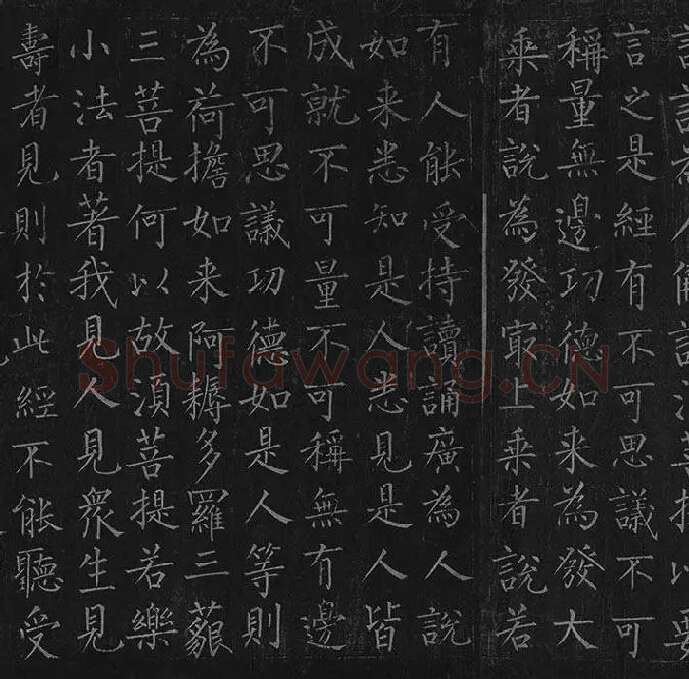 言之是經有不可思議不可
稱量無邊功德如来為發大
乗者說為發冣上乗者說若
有人能受持讀誦廣為人說
如来悉知是人悉見是人皆
成就不可量不可稱無有邊
不可思議功德如是人等則
為荷擔如来阿耨多羅三藐
三菩提何以故湏菩提若樂
小法者著我見人見衆生見
壽者見則於此經不能聽受
Shufawang.CN